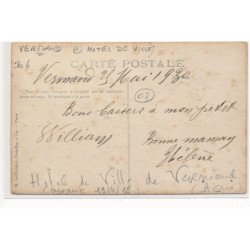 VERMAND (HOTEL DE VILLE)
CARTE POSTALE
Vermand 25 Mai 1930
02
Bons baisers à mon petit
William
Bonne maman
Hélène
Hotel de Ville de Vermand
avant 1914/18 (Aisne)